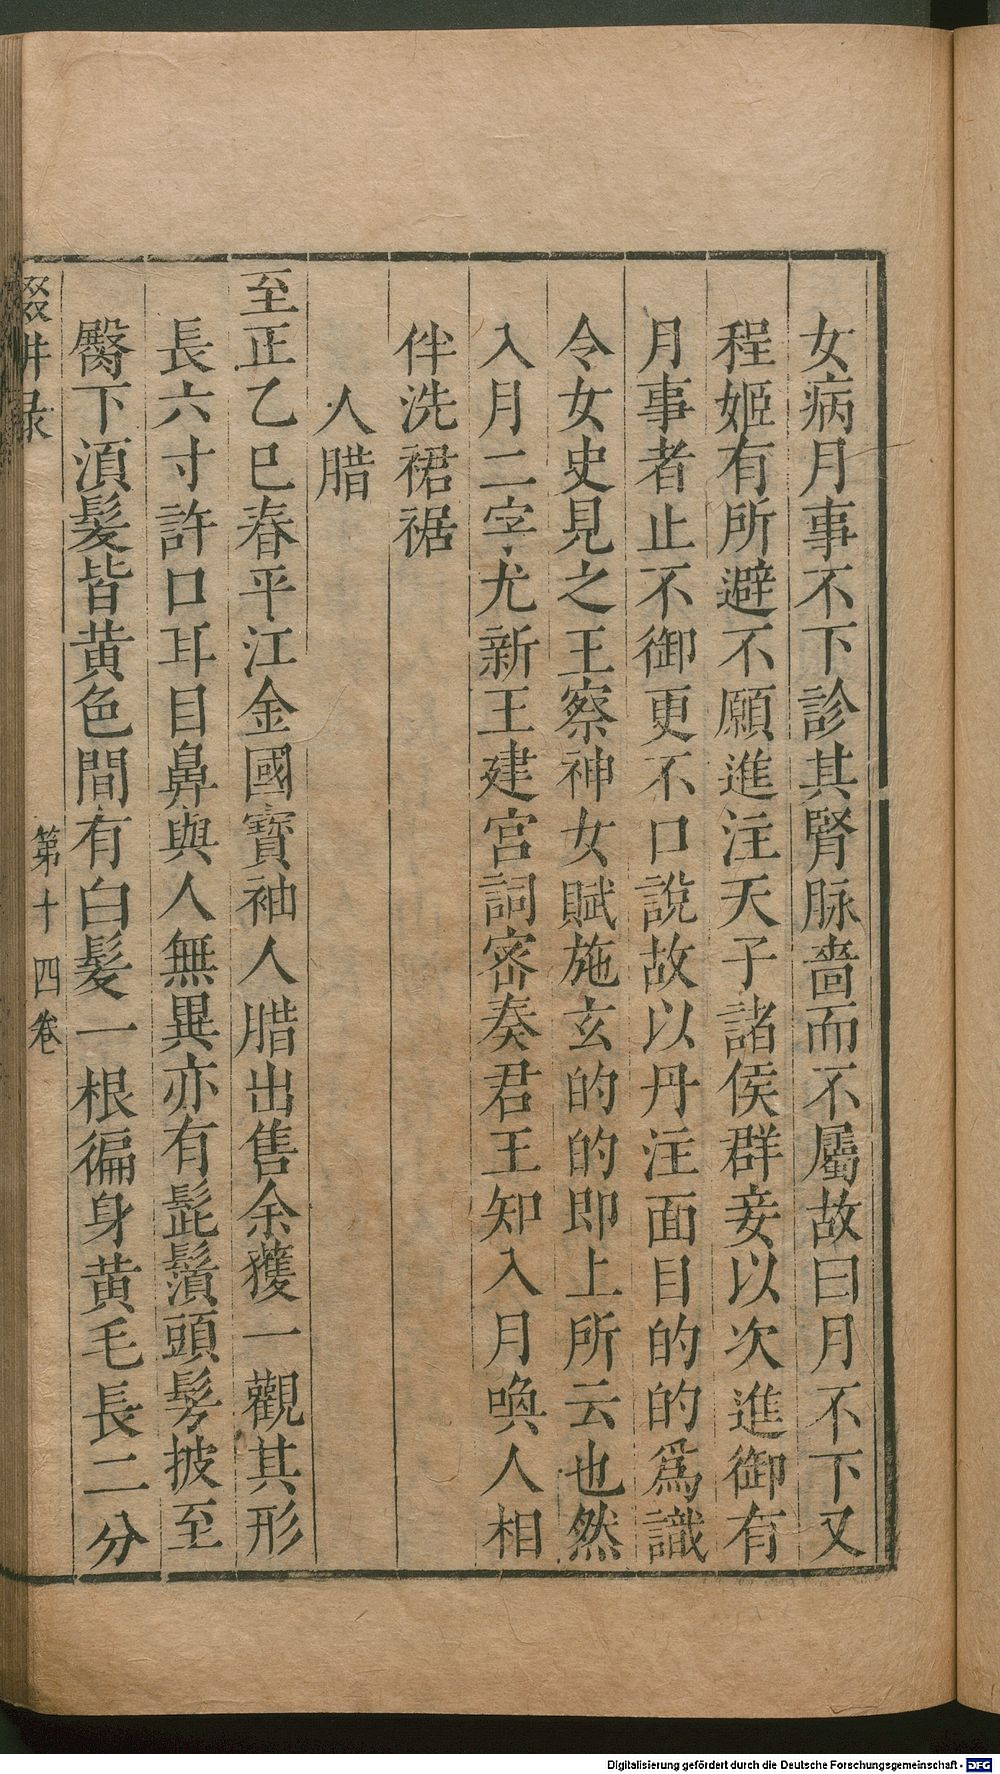 女病月事不下診其腎脉嗇而不屬故曰月不下又
程姬有所避不願進注天子諸侯群妾以次進御有
月事者止不御更不口說故以丹注面目的的爲識
令女史見之王察神女賦施玄的的即上所云也然
入月二字尤新王建宮詞密奏君王知入月喚人相
伴洗裙裾
人腊
至正乙巳春平江金國寶袖人腊出售余獲一觀其形
長六寸許口耳目鼻與人無異亦有髭鬚頭髮披至
臀下湏髮皆黄色間有白髮一根徧身黄毛長二分
輟耕录
第十四卷
Digitalisierung gefördert durch die Deutsche Forschungsgemeinschaft - DFG